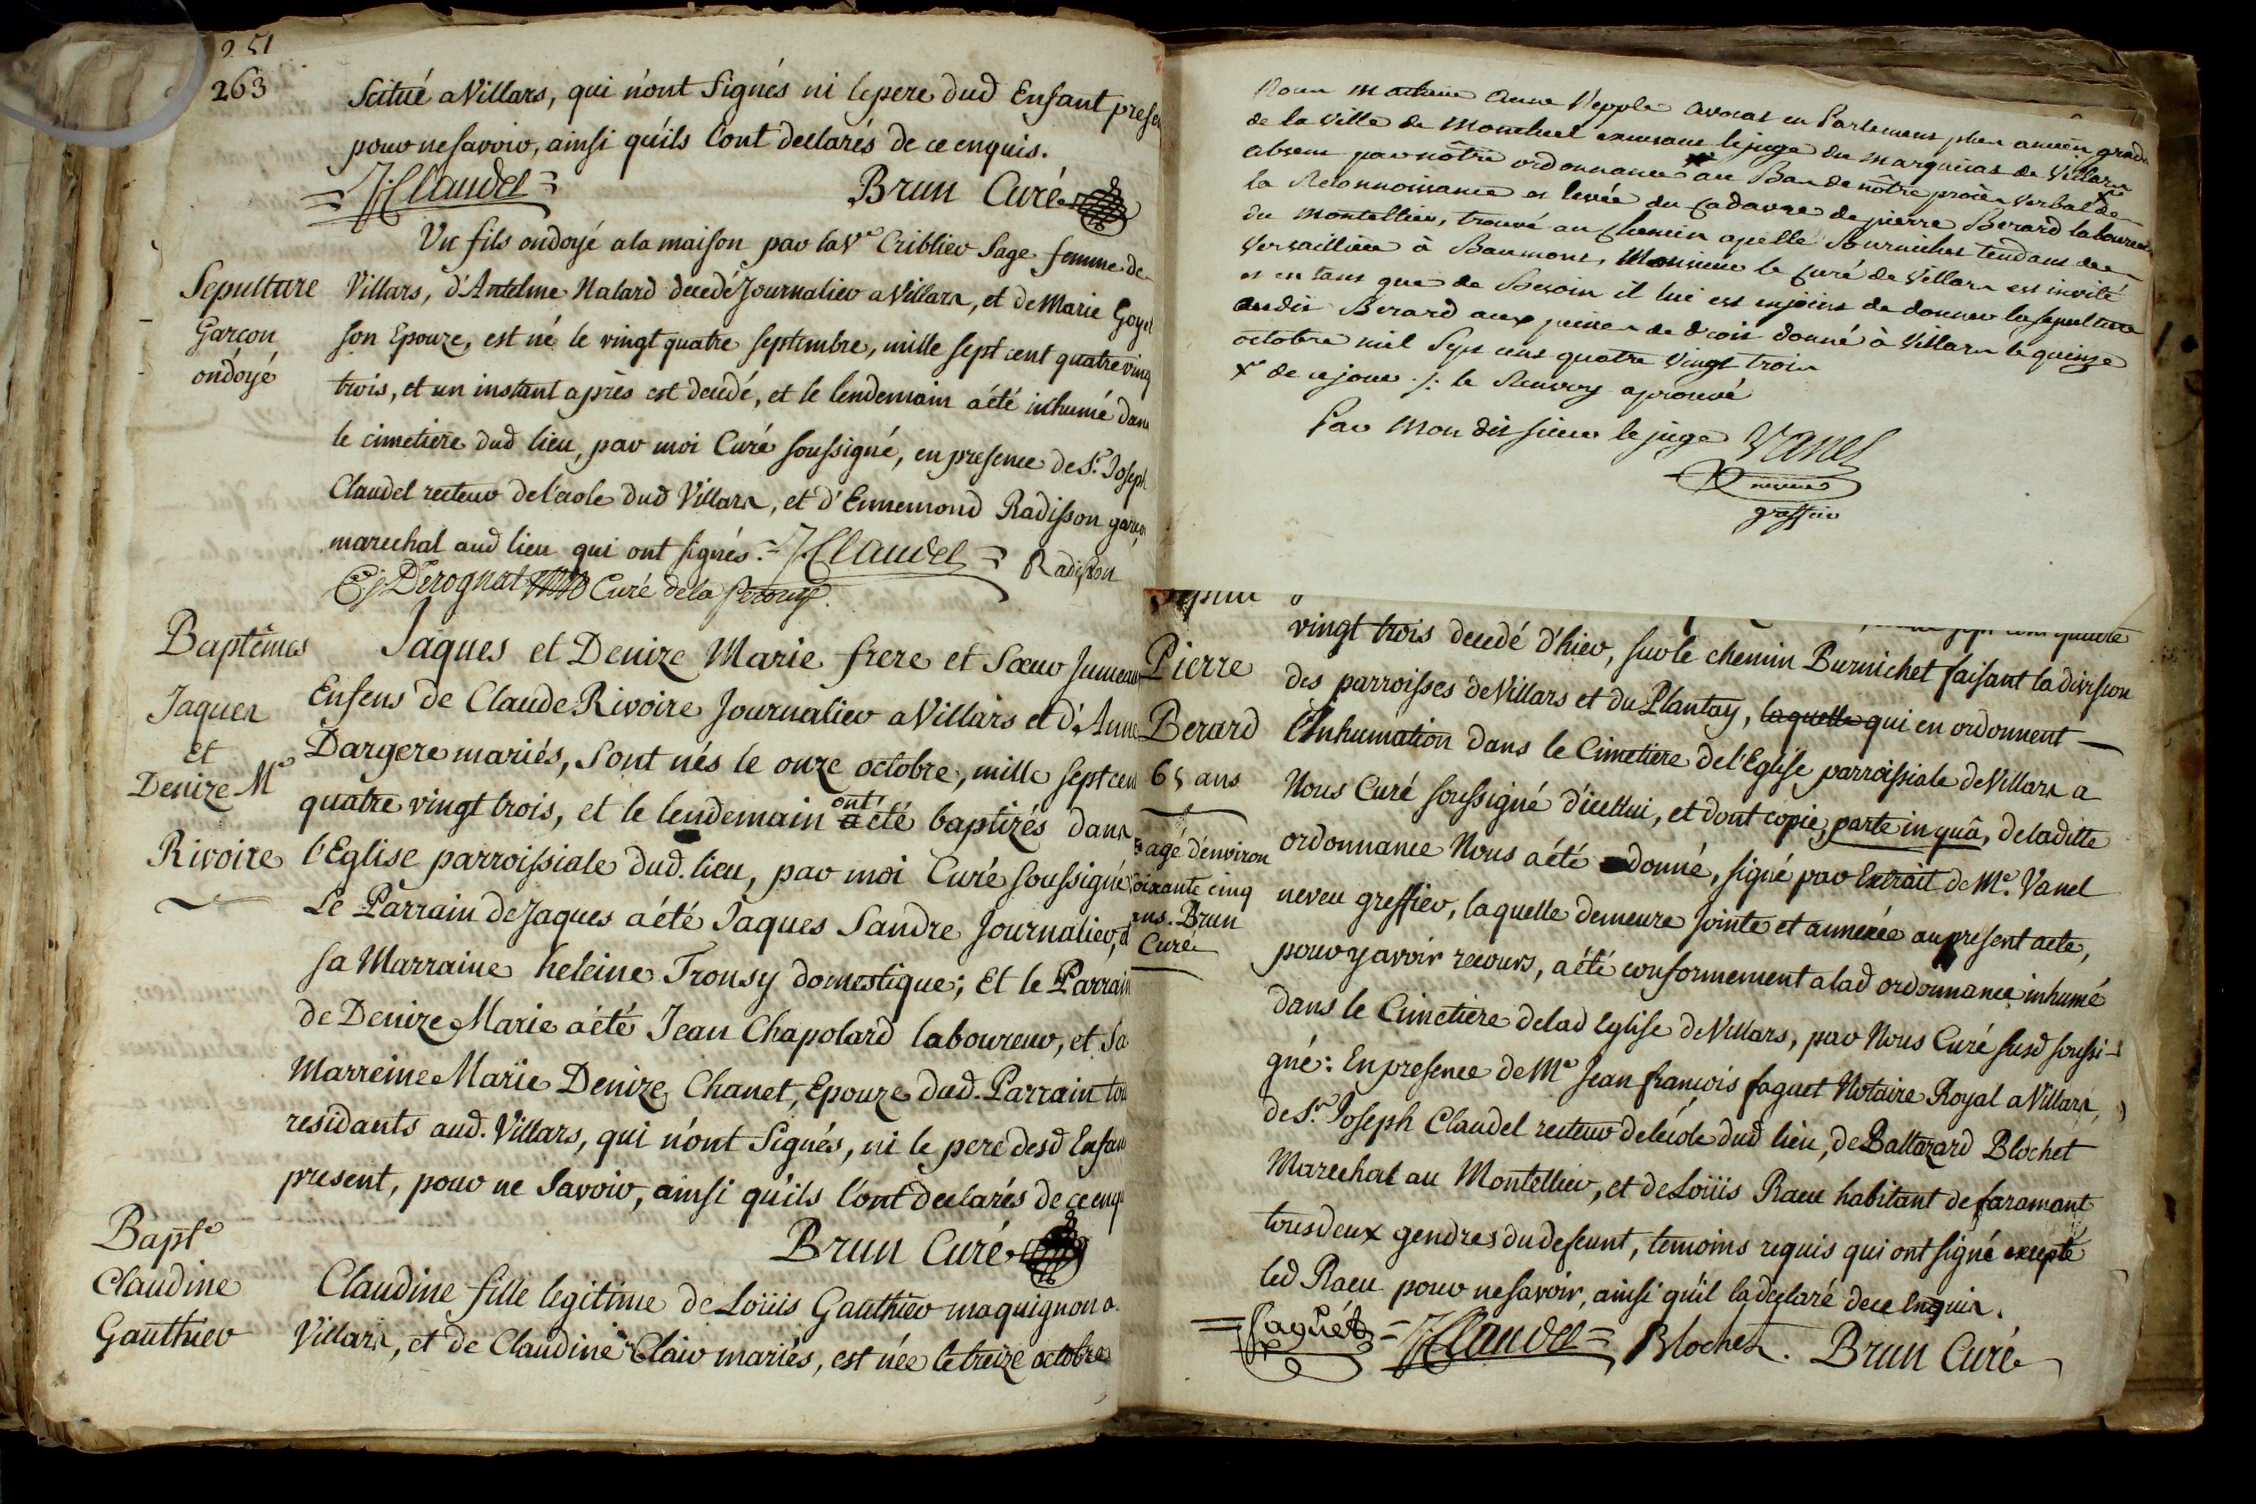 251
263
Scitué a Villars, qui n'ont Signés ni le pere dud Enfant presen
pour ne savoir, ainsi qu'ils l'ont declarés de ce enquis.
J Claudel
Brun Curé
Un fils ondoyé a la maison par la Ve Criblier Sage femme de
Sepulture
Garçon
ondoyé
Villars, d'Antelme Nalard decedé Journalier a Villars, et de Marie Goyet
son Epouze, est né le vingt quatre septembre, mille sept cent quatre ving
trois, et un instant après est decedé, et le lendemain a été inhumé dans
le cimetiere dud lieu, par moi Curé soussigné, en presence de Sr. Joseph
Claudel recteur de l'ecole dud Villars, et d'Ennemond Radisson garço
marechal aud lieu qui ont signés. J Claudel Radisson
Derognat Curé de la
Baptêmes
Jaques
et
Denize Me
Rivoire
Jaques et Denize Marie frere et Sœur Jumeaux
Enfens de Claude Rivoire Journalier a Villars et d'Anne
Dargere mariés, sont nés le onze octobre, mille sept cent
quatre vingt trois, et le lendemain ont été baptizés dans
l'Eglise parroissiale dud. lieu, par moi Curé soussigné
Le Parrain de Jaques a été Jaques Sandre Journalier, et
sa Marraine heleine Trousy domestique; Et le Parrain
de Denize Marie a été Jean Chapolard laboureur, et Sa
Marreine Marie Denize Chanet, Epouze dud. Parrain tou
residants aud. Villars, qui n'ont Signés, ni le pere desd Enfan
present, pour ne Savoir, ainsi qu'ils l'ont declarés de ce enqu
Brun Curé
Bapte
Claudine
Gauthier
Claudine fille legitime de Loüis Gauthier maquignon a
Villars, et de Claudine Clair mariés, est née le treize octobre
Nous Anne Vepple avocat en Parlement plus ancien gradu
de la ville de Montluel exerceant le juge du marquisat de Villars
absent par nôtre ordonnance au Bas de nôtre procès verbal de
la Reconnoissance et levée du Cadavre de pierre Berard laboureur
du Montellier, trouvé au Chemin apellé Burnichet tendant de
Versaillieu à Baumont, Monsieur le Curé de Villars est invité
et en tant que de Besoin il lui est enjoint de donner la sepulture
audit Berard aux peines de droit donné à Villars le quinze
octobre mil Sept cent quatre Vingt trois
x de ce jour ./. le Renvoy aprouvé
Par Mon dit sieur le juge Vanel
neveu
greffier
Pierre
Berard
65 ans
agé d'environ
soixante cinq
ans. Brun
Curé
vingt trois decedé d'hier, sur le chemin Burnichet faisant la division
des parroisses de Villars et du Plantay, laquelle qui en ordonnent
l'Inhumation dans le Cimetiere de l'Eglise parroissiale de Villars a
Nous Curé soussigné d'icellui, et dont copie, parte in quâ, de laditte
ordonnance Nous a été donné, signé par Extrait de Me. Vanel
neveu greffier, laquelle demeure Jointe et annexée au present acte,
pour y avoir recours, a été conformement a lad ordonnance inhumé
dans le Cimetiere de lad Eglise de Villars, par Nous Curé susd soussi-
gné: En presence de Me Jean françois faguet Notaire Royal a Villars,
de Sr. Joseph Claudel recteur de l'ecole dud lieu, de Baltazard Blochet
Marechal au Montellier, et de Loüis Raeu habitant de faramant
tous deux gendres du defeunt, temoins requis qui ont signé excepté
led Raeu pour ne savoir, ainsi qu'il l'a declaré de ce Enquis.
Faguet J Claudel Blochet. Brun Curé